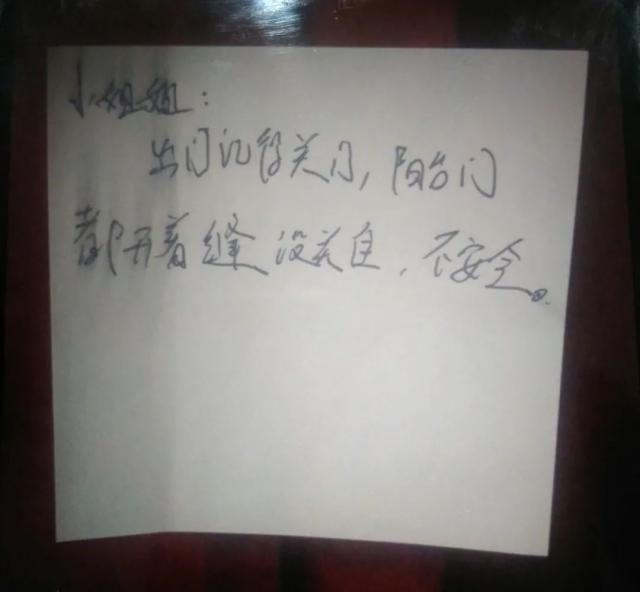 小姐姐：
出门记得关门，阳台门
都开着缝没关住，不安全。